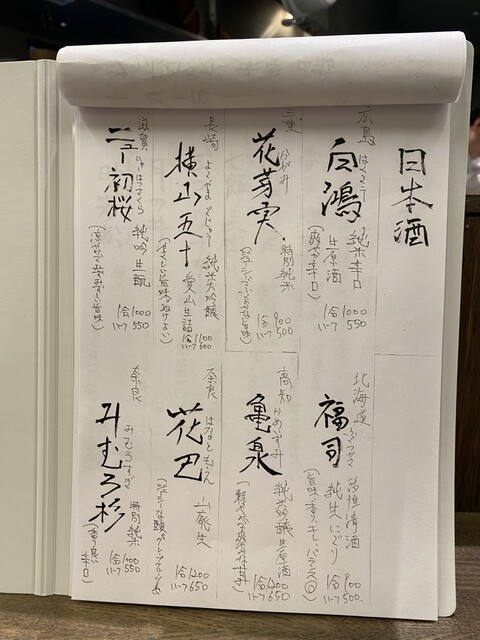 日本酒
広島
白鴻
はくこう
純米辛口
生原酒
(爽やか辛口)
1合 1000
ハーフ 550
三重
花芽実
かがみ
特別純米
1合 900
ハーフ 500
長崎
よこやま ごじゅう
横山五十
純米大吟醸
愛山生詰
(やさしい旨味のぬけよい)
1合 1100
ハーフ 600
滋賀
にゅーはつざくら
ニュー初桜
純吟生酛
1合 1000
ハーフ 550
北海道
福司
ふくつかさ
活性清酒
純生にごり
(旨味・香り・キレ、バランス◎)
1合 900
ハーフ 500.
高知
かめいずみ
亀泉
純米吟醸生原酒
(軽やかで爽やかな甘辛)
1合 1200
ハーフ 650
奈良
はなともえ
花巴
山廃生
1合 1200
ハーフ 650
奈良
みむろすぎ
みむろ杉
特別純米
(香り良い
辛口)
1合 1000
ハーフ 550